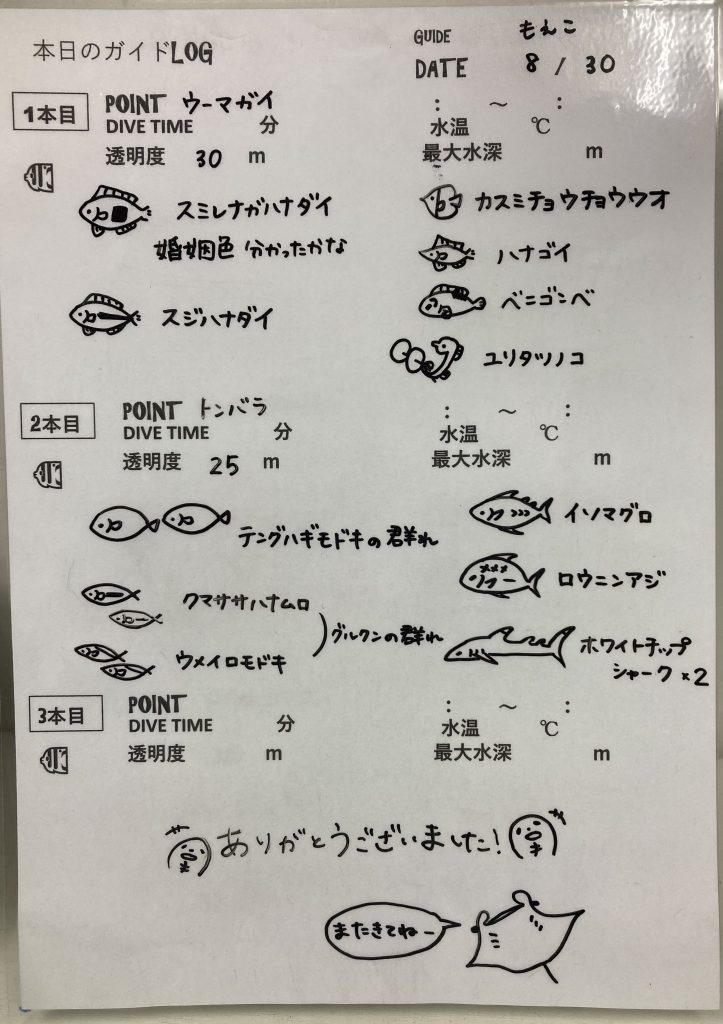 本日のガイドLOG
GUIDE もえこ
DATE 8 / 30
1本目
POINT ウーマガイ
: ～ :
DIVE TIME 分
水温 ℃
透明度 30 m
最大水深 m
スミレナガハナダイ
婚姻色 分かったかな
スジハナダイ
カスミチョウチョウウオ
ハナゴイ
ベニゴンベ
ユリタツノコ
2本目
POINT トンバラ
: ～ :
DIVE TIME 分
水温 ℃
透明度 25 m
最大水深 m
テングハギモドキの群れ
クマササハナムロ
ウメイロモドキ
グルクンの群れ
イソマグロ
ロウニンアジ
ホワイトチップ
シャーク×2
3本目
POINT
: ～ :
DIVE TIME 分
水温 ℃
透明度 m
最大水深 m
ありがとうございました!
またきてねー